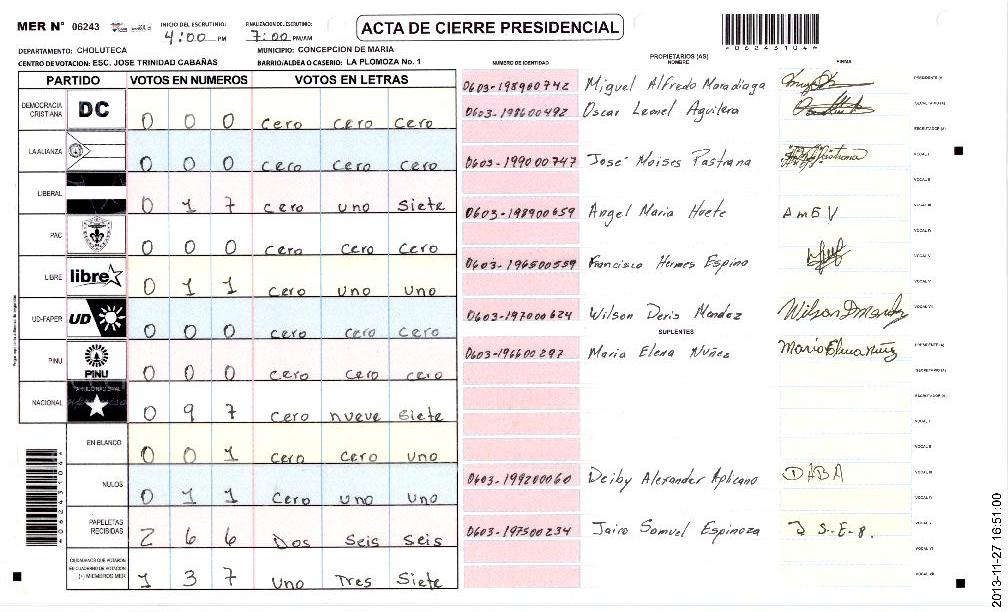 MER N° 06243 INICIO DEL ESCRUTINIO: 4:00 PM FINALIZACION DEL ESCRUTINIO: 7:00 PM/AM ACTA DE CIERRE PRESIDENCIAL
DEPARTAMENTO: CHOLUTECA MUNICIPIO: CONCEPCION DE MARIA
CENTRO DE VOTACION: ESC. JOSE TRINIDAD CABAÑAS BARRIO/ALDEA O CASERIO: LA PLOMOZA No. 1
062431044
PARTIDO VOTOS EN NUMEROS VOTOS EN LETRAS
DEMOCRACIA CRISTIANA DC 0 0 0 cero cero cero
LA ALIANZA 0 0 0 cero cero cero
LIBERAL 0 1 7 cero uno siete
PAC 0 0 0 cero cero cero
LIBRE libre 0 1 1 cero uno uno
UD-FAPER UD 0 0 0 cero cero cero
PINU PINU 0 0 0 cero cero cero
NACIONAL 0 9 7 cero nueve siete
EN BLANCO 0 0 1 cero cero uno
NULOS 0 1 1 cero uno uno
PAPELETAS RECIBIDAS 2 6 6 Dos Seis Seis
CIUDADANOS QUE VOTARON EN CUADERNO DE VOTACION (+) MIEMBROS MER 1 3 7 uno Tres Siete
NUMERO DE IDENTIDAD PROPIETARIOS (AS) NOMBRE FIRMA
0603-198900742 Miguel Alfredo Maradiaga PRESIDENTE (A)
0603-198600492 Oscar Leonel Aguilera SECRETARIO (A)
ESCRUTADOR (A)
0603-199000747 José Moises Pastrana VOCAL I
VOCAL II
0603-198900659 Angel Maria Huete AmEV VOCAL III
VOCAL IV
0603-196500559 Francisco Hermes Espino VOCAL V
VOCAL VI
0603-197000624 Wilson Denis Mendez Wilson D Mendez VOCAL VII
SUPLENTES
0603-196600297 Maria Elena Nuñez Maria Elena Nuñez PRESIDENTE (A)
SECRETARIO (A)
ESCRUTADOR (A)
VOCAL I
VOCAL II
0603-199200060 Deiby Alexander Aplicano DABA VOCAL III
VOCAL IV
0603-197500234 Jairo Samuel Espinoza J S-E-8. VOCAL V
VOCAL VI
VOCAL VII
2013-11-27 16:51:00